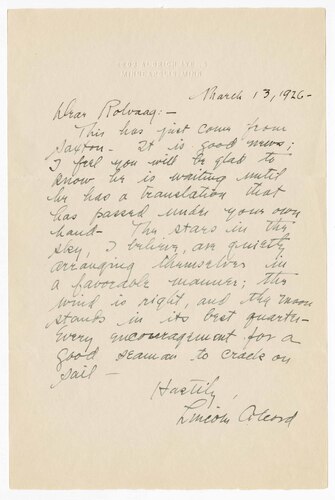 March 13, 1926-
Dear Rolvaag:-
This has just come from
Saxton- It is good news;
I feel you will be glad to
know he is waiting until
he has a translation that
has passed under your own
hand- The stars in the
sky, I believe, are quietly
arranging themselves in
a favorable manner; the
wind is right, and the moon
stands in its best quarter-
Every encouragement for a
good seaman to crack on
sail-
Hastily,
Lincoln Colcord